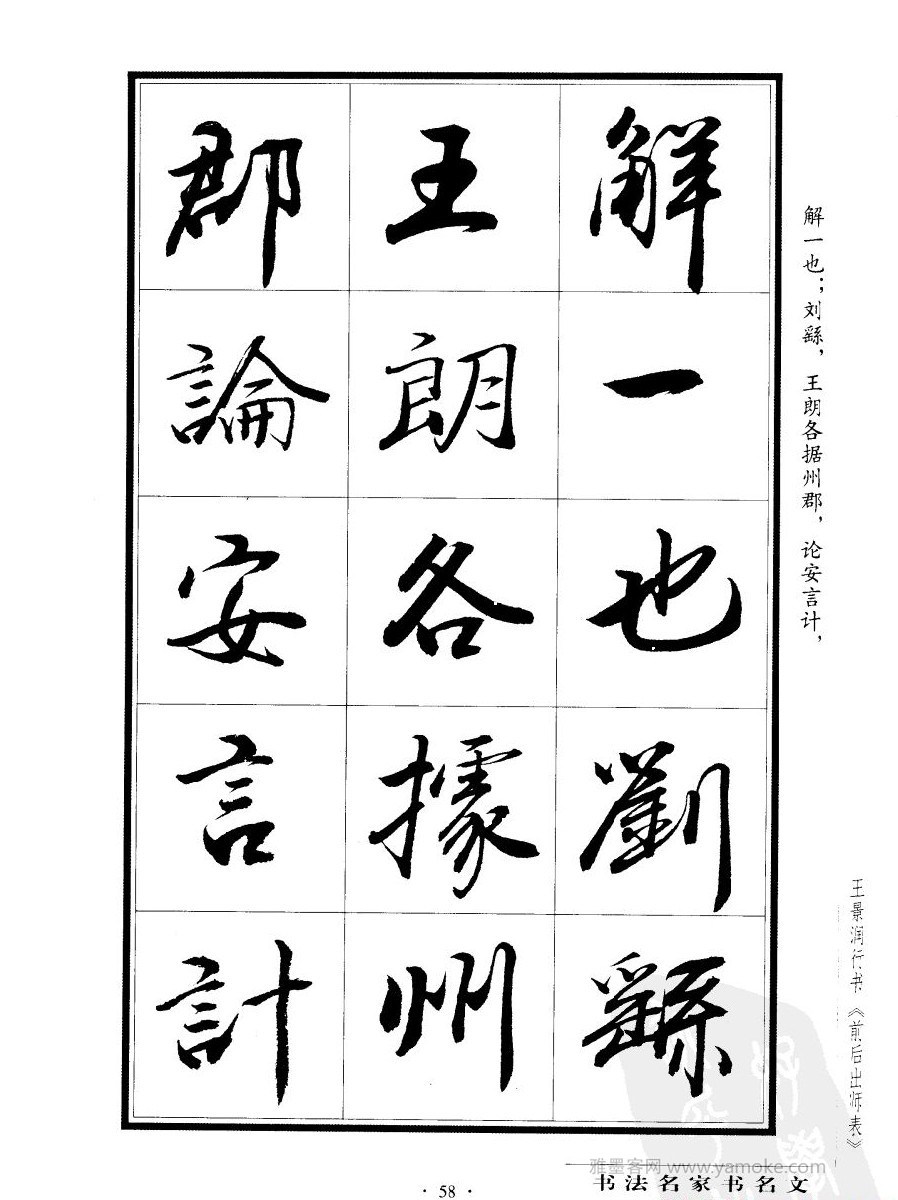 解一也劉繇
王朗各據州
郡論安言計
解一也；刘繇，王朗各据州郡，论安言计，
王景润行书《前后出师表》
雅墨客网 www.yamoke.com
书法名家书名文
· 58 ·